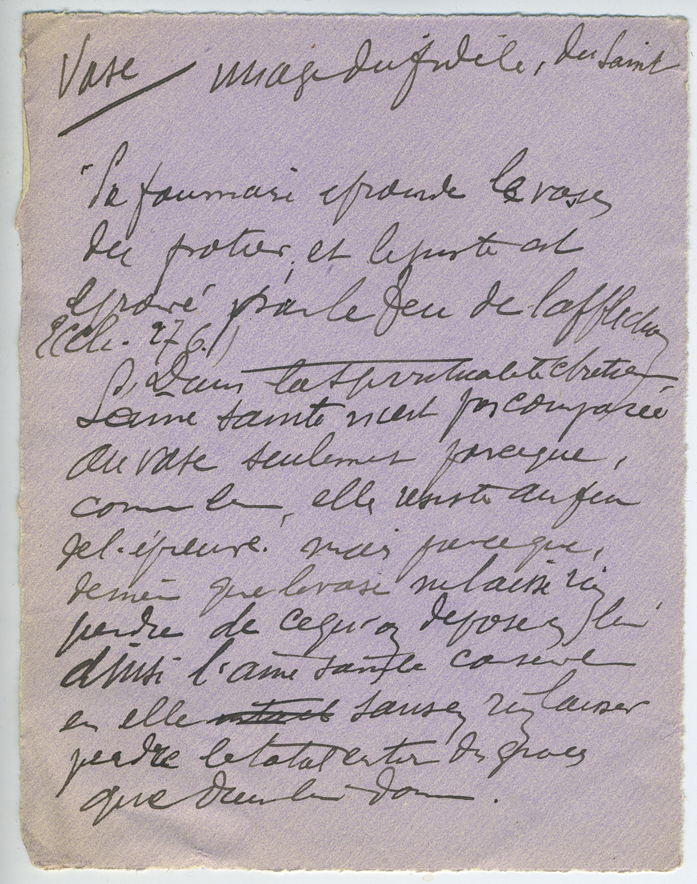 Vase / image du fidèle, du Saint
"La fournaise éprouve les vases
du potier, et le juste est
éprouvé par le feu de l'affliction
Eccli. 27 6.)
Dans la spiritualité chrétienne
L'âme sainte n'est pas comparée
au vase seulement parce que,
comme lui, elle résiste au feu
de l'épreuve. mais parce que,
de même que le vase ne laisse rien
perdre de ce qu'on dépose en lui
ainsi l'âme sainte conserve
en elle intact sans en rien laisser
perdre le total entier des grâces
que Dieu lui donne.